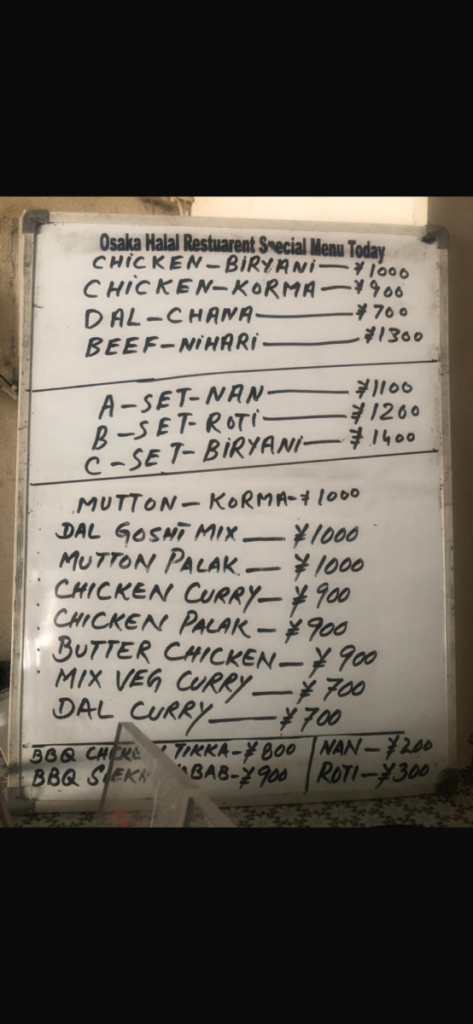 Osaka Halal Restuarent Special Menu Today
CHICKEN-BIRYANI-¥1000
CHICKEN-KORMA-¥900
DAL-CHANA-¥700
BEEF-NIHARI-¥1300
A-SET-NAN-¥1100
B-SET-ROTI-¥1200
C-SET-BIRYANI-¥1400
MUTTON-KORMA-¥1000
DAL GOSHT MIX-¥1000
MUTTON PALAK-¥1000
CHICKEN CURRY-¥900
CHICKEN PALAK-¥900
BUTTER CHICKEN-¥900
MIX VEG CURRY-¥700
DAL CURRY-¥700
BBQ TIKKA-¥800
BBQ -¥900
NAN-¥200
ROTI-¥300